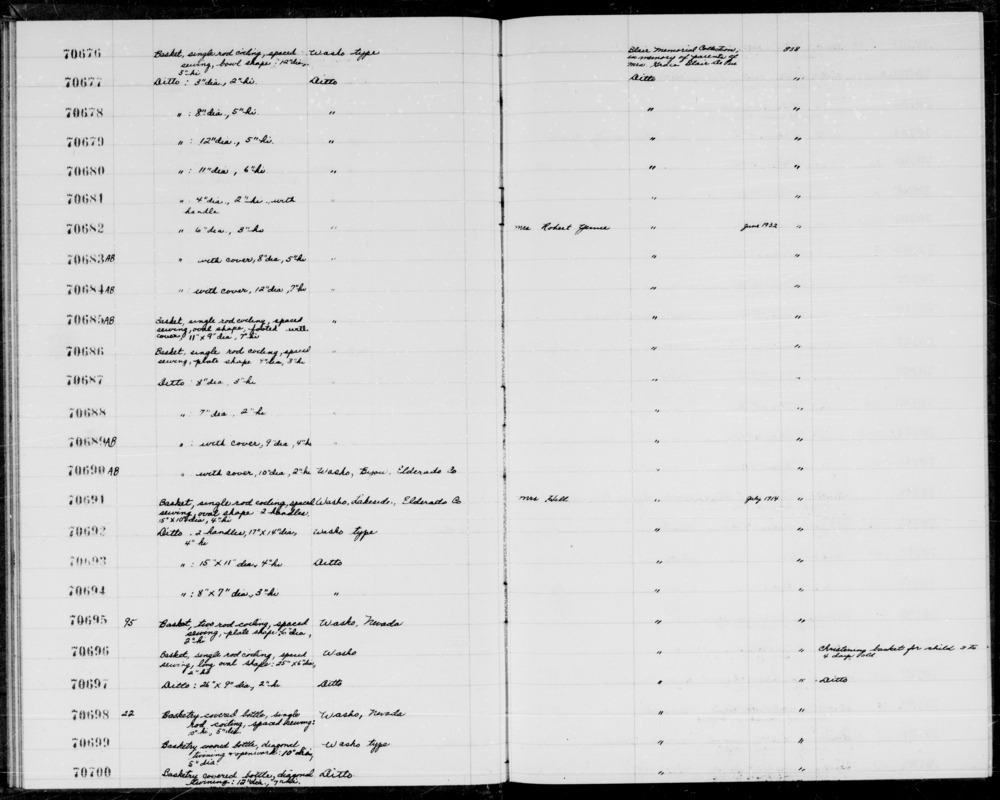 70676 Basket, single rod coiling, spaced Washo type Blair Memorial Collection, 838
sewing, bowl shape : 12" dia., in memory of parents of
5" hi Mrs. Grace Blair De Pue
70677 Ditto : 3" dia., 2" hi. Ditto Ditto "
70678 " : 8" dia., 5" hi. " " "
70679 " : 12" dia., 5" hi. " " "
70680 " : 11" dia, 6" hi " " "
70681 " 4" dia., 2" hi., with " " "
handle
70682 " 6" dia., 3" hi " Mrs Robert " June 1922 "
70683AB " with cover, 8" dia, 5" hi " " "
70684AB " with cover, 12" dia, 7" hi " " "
70685AB Basket, single rod coiling, spaced " " "
sewing, oval shape, footed with
cover, 11" x 9" dia, 7" hi
70686 Basket, single rod coiling, spaced " " "
sewing, plate shape dia, 3" hi
70687 Ditto : 8" dia, 3" hi " " "
70688 " : 7" dia, 2" hi " " "
70689AB " : with cover, 9" dia, 4" hi " " "
70690AB " with cover, 10" dia, 2" hi Washo, Bijou, Eldorado Co " "
70691 Basket, single rod coiling, spaced Washo, Lakeside, Eldorado Co Mrs Hill " July 1914 "
sewing, oval shape 2 handles
15" x 10" dia, 4" hi
70692 Ditto . 2 handles, 17" x 14" dia, Washo type " "
4" hi
70693 " : 15" x 11" dia, 4" hi Ditto " "
70694 " : 8" x 7" dia, 3" hi " " "
70695 95 Basket, two rod coiling, spaced Washo, Nevada " "
sewing, plate shape dia,
2" hi
70696 Basket, single rod coiling, spaced Washo " " Christening basket for child 3 to
sewing, long oval shape : 25" x 6" dia, 4 days old
2" hi
70697 Ditto : 26" x 9" dia, 2" hi Ditto " " Ditto
70698 22 Basketry covered bottle, single Washo, Nevada " "
rod coiling, spaced sewing :
hi, 5" dia.
70699 Basketry covered bottle, diagonal Washo type " "
twining & openwork : 10" hi,
5" dia
70700 Basketry covered bottle, diagonal Ditto " "
twining : 12" dia.,